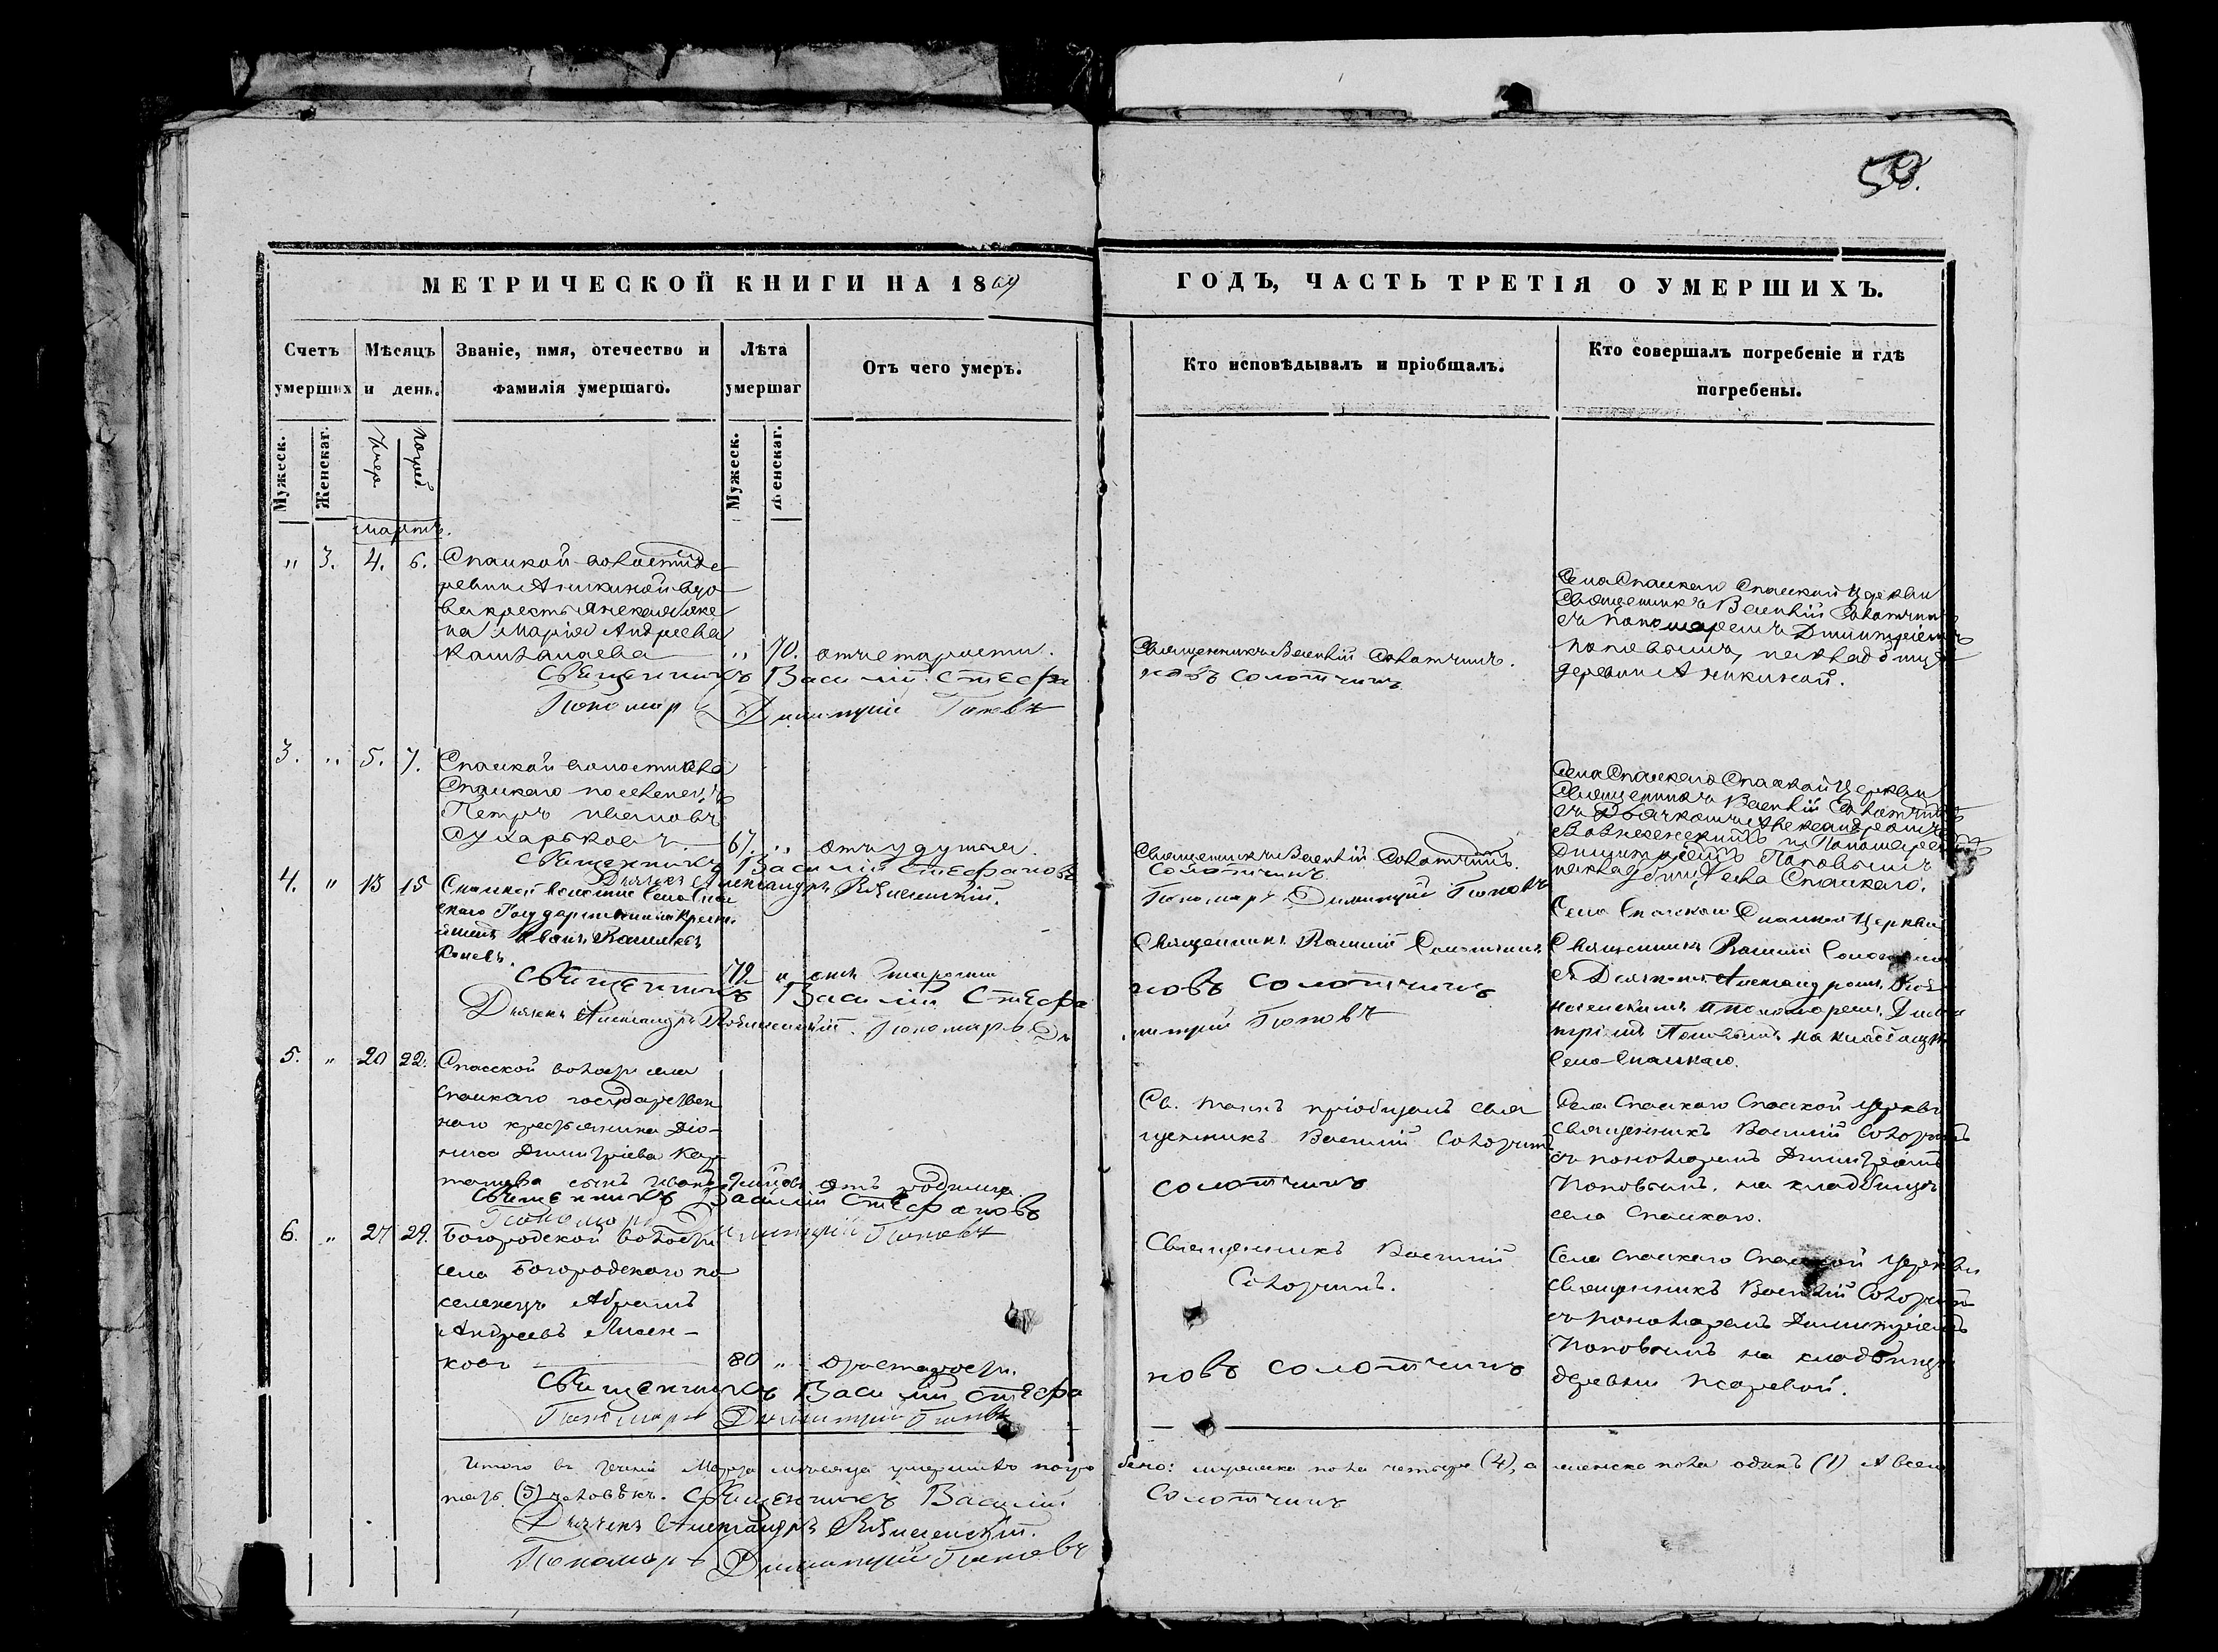 50.
МЕТРИЧЕСКОЙ КНИГИ НА 1869
ГОДЪ, ЧАСТЬ ТРЕТІЯ О УМЕРШИХЪ.
Счетъ умерших
Мѣсяцъ и день.
Званіе, имя, отечество и фамилія умершаго.
Лѣта умершаг
Отъ чего умеръ.
Кто исповѣдывалъ и пріобщалъ.
Кто совершалъ погребеніе и гдѣ погребены.
Мужеск.
Женскаг.
Умер.
Погреб.
Мужеск.
Женскаг.
Мартъ.
" 3. 4. 6.
Спаской волости де
ревни Аникиной вдо
ва крестьянская
на Марія Андреева
" 70. отъ старости.
Священникъ Василій Солотчинъ.
Села Спаскаго Спаской Церкви
Священникъ Василій Солотчинъ
съ пономаремъ Димитріемъ
Поповымъ, на кладбищѣ
деревни Аникиной.
Священникъ Василій Стефа
новъ Солотчинъ
Пономарь Димитрій Поповъ
3. " 5. 7.
Спаской волости села
Спаскаго поселенецъ
Петръ Ивановъ
Сухарьковъ
67. " отъ удушья.
Священникъ Василій Солотчинъ.
Села Спаскаго Спаской Церкви
Священникъ Василій Солотчинъ
съ Дьячкомъ Александромъ
и Пономаремъ
Димитріемъ Поповымъ
на кладбищѣ села Спаскаго.
Священникъ Василій Стефановъ
Солотчинъ
Дьячекъ Александръ
Пономарь Димитрій Поповъ
4. " 13 15
Спаской волости Села Спас
скаго Государственный Кресть
янинъ Иванъ
72 " отъ старости
Священникъ Василій Солотчинъ
Села Спаскаго Спаской Церкви
Священникъ Василій Солотчинъ
съ Дьячкомъ Александромъ
и пономаремъ Дими
тріемъ Поповымъ на кладбищѣ
Села Спаскаго.
Священникъ Василій Стефа
новъ Солотчинъ
Дьячекъ Александръ
Пономарь Ди
митрій Поповъ
5. " 20 22.
Спасской волости села
Спаскаго государствен
наго крестьянина Діо
ниса Димитріева Кар
сынъ Иванъ отъ родимца.
Св. таинъ пріобщалъ свя
щенникъ Василій Солотчинъ
Села Спаскаго Спаской церкви
Священникъ Василій Солотчинъ
съ пономаремъ Димитріемъ
Поповымъ. на кладбищѣ
села Спаскаго.
Священникъ Василій Стефановъ
Солотчинъ
Пономарь Димитрій Поповъ
6. " 27 29.
Богородской волости
села Богородскаго по
селенецъ Абрамъ
Андреевъ Лисен-
ковъ
80 " отъ старости.
Священникъ Василій
Солотчинъ.
Села Спаскаго Спаской церкви
Священникъ Василій Солотчинъ
съ пономаремъ Димитріемъ
Поповымъ на кладбищѣ
деревни
Священникъ Василій Стефа
новъ Солотчинъ
Пономарь Димитрій Поповъ
Итого въ теченіе Марта мѣсяца умершихъ погре бено: мужеска пола четыре (4), а женска пола одинъ (1) А всего
пять (5) человѣкъ. Священникъ Василій Солотчинъ
Дьячекъ Александръ
Пономарь Димитрій Поповъ